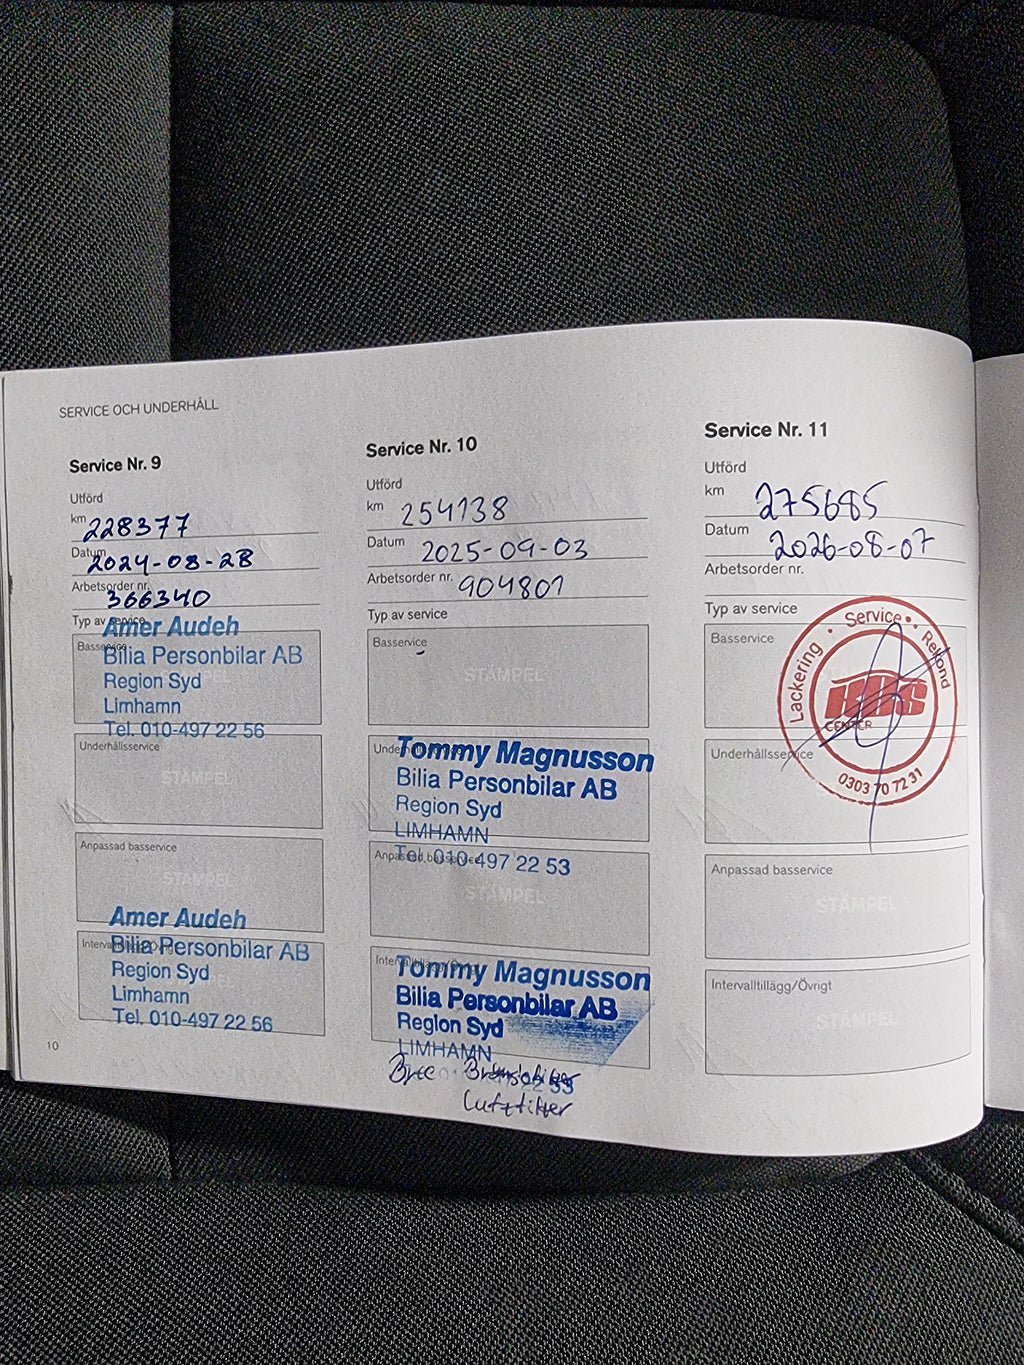 SERVICE OCH UNDERHÅLL
Service Nr. 9
Utförd
km 228377
Datum 2024-08-28
Arbetsorder nr. 366340
Typ av service
Basservice
Amer Audeh
Bilia Personbilar AB
Region Syd
Limhamn
Tel. 010-497 22 56
Underhållsservice
STÄMPEL
Anpassad basservice
STÄMPEL
Intervalltillägg/Övrigt
Amer Audeh
Bilia Personbilar AB
Region Syd
Limhamn
Tel. 010-497 22 56
10
Service Nr. 10
Utförd
km 254138
Datum 2025-09-03
Arbetsorder nr. 904801
Typ av service
Basservice
STÄMPEL
Underhållsservice
Tommy Magnusson
Bilia Personbilar AB
Region Syd
LIMHAMN
Tel. 010-497 22 53
Anpassad basservice
STÄMPEL
Intervalltillägg/Övrigt
Tommy Magnusson
Bilia Personbilar AB
Region Syd
LIMHAMN
Service Nr. 11
Utförd
km 275685
Datum 2026-08-07
Arbetsorder nr.
Typ av service
Basservice
Lackering • Service • Rekond
CENTER
0303 70 72 31
Underhållsservice
Anpassad basservice
STÄMPEL
Intervalltillägg/Övrigt
STÄMPEL